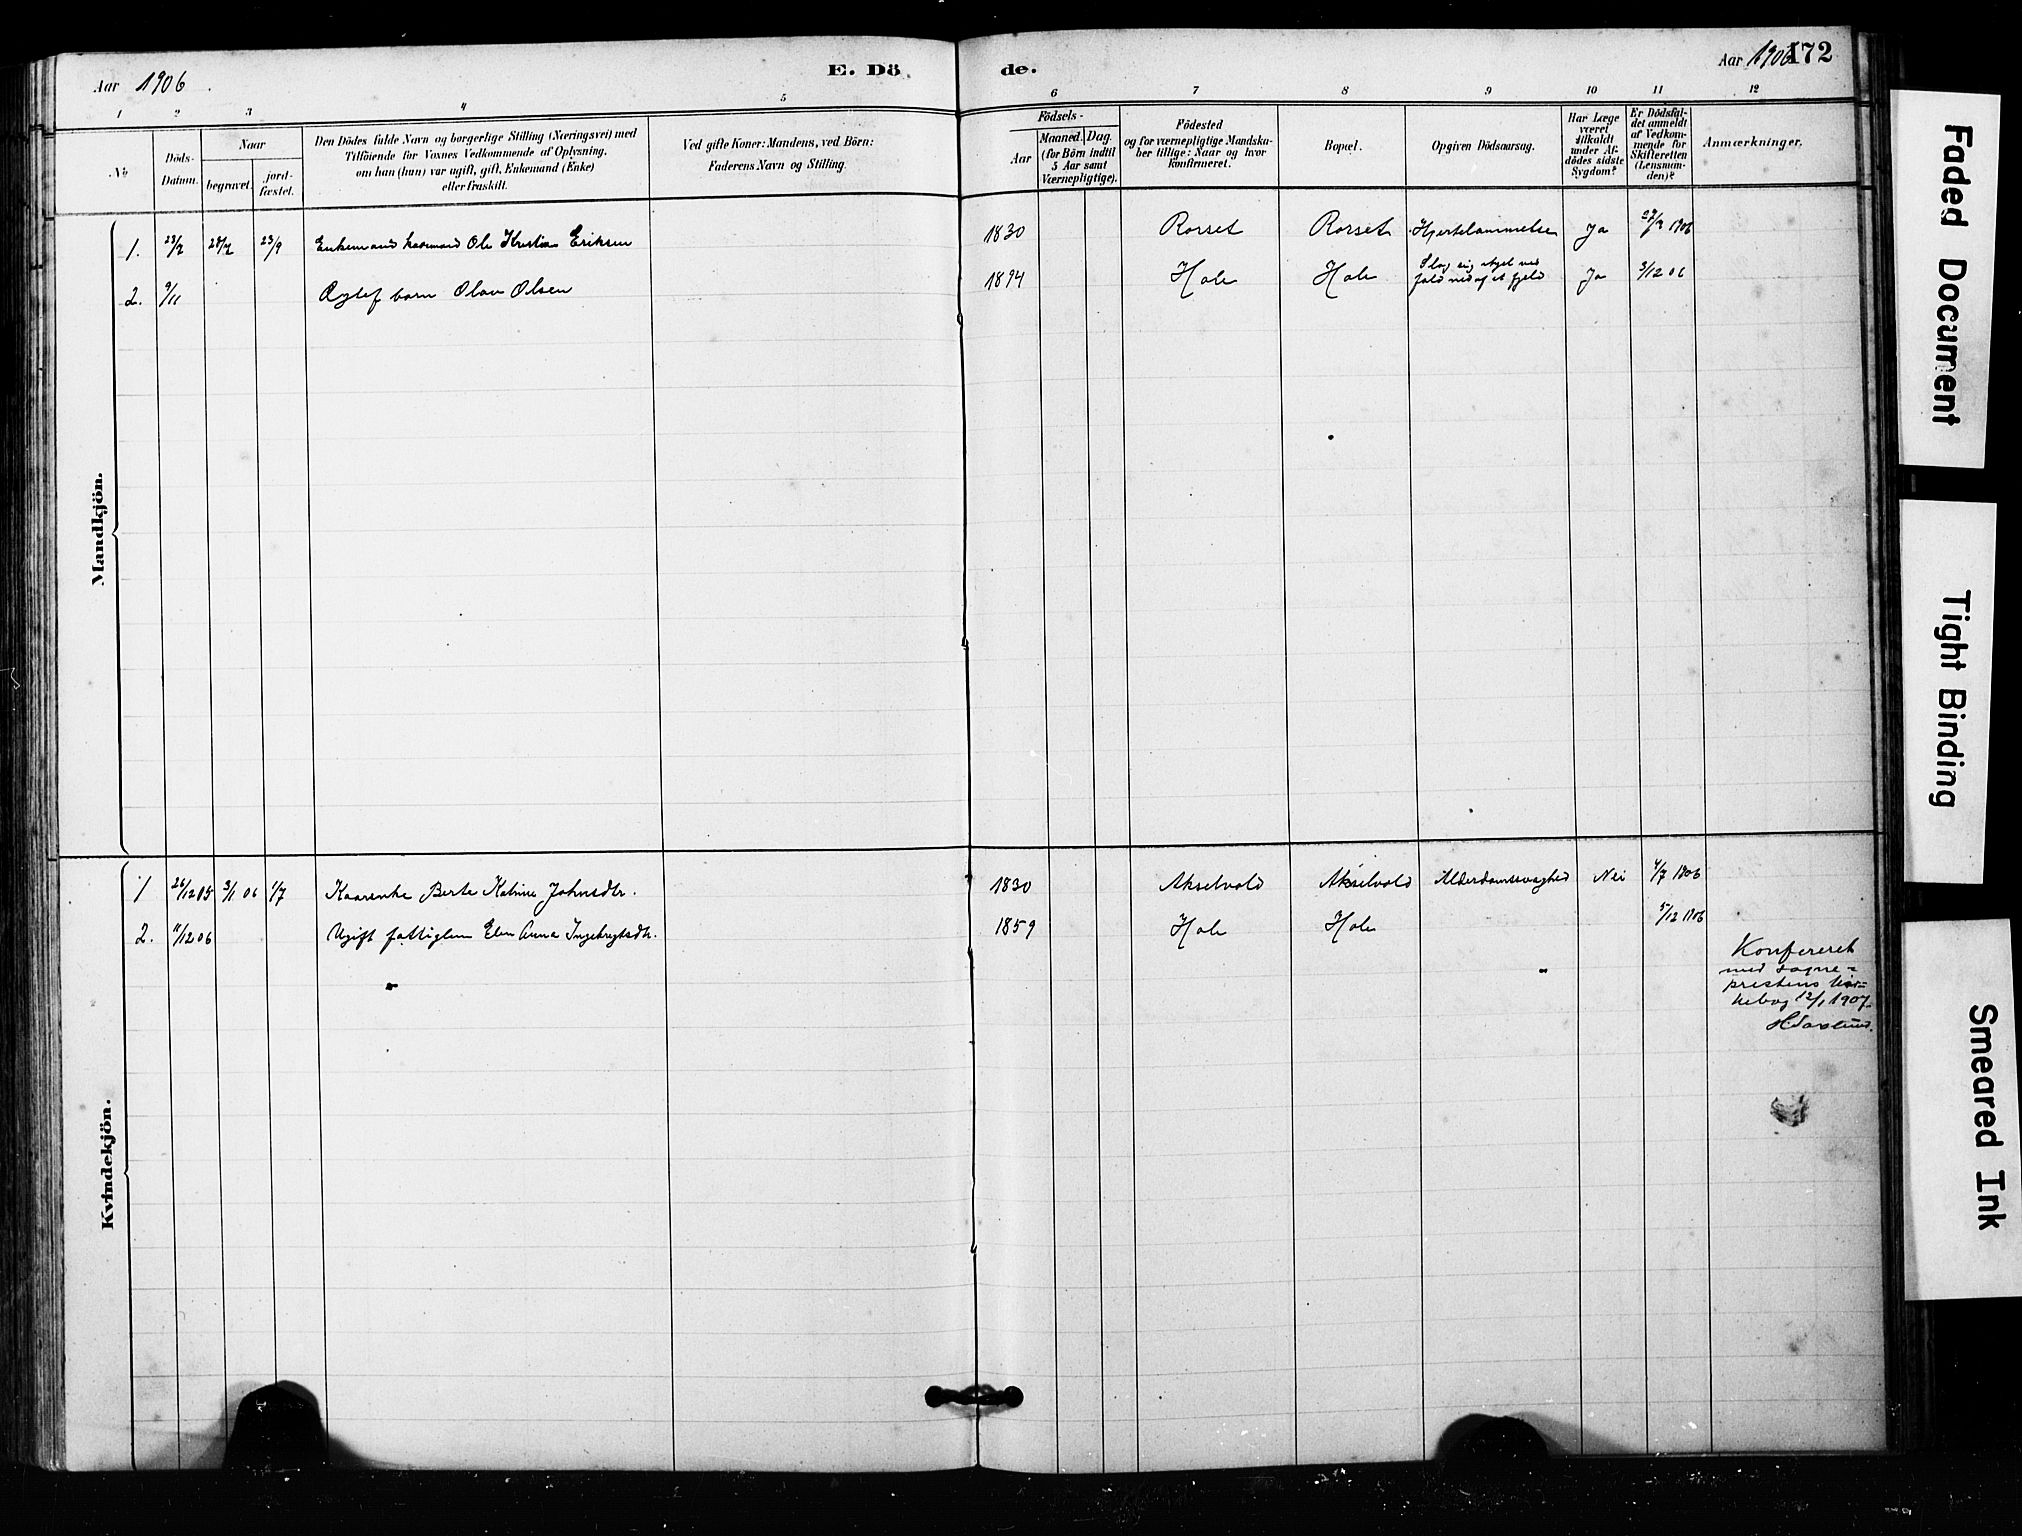 Aar 1906.
E. Dö de.
Aar 1906
172
1 2 3 4 5 6 7 8 9 10 11 12
No
Döds-
Datum.
Naar
begravet.
jord-
fæstet.
Den Dödes fulde Navn og borgerlige Stilling (Næringsvei) med
Tilföiende for Voxnes Vedkommende af Oplysning,
om han (hun) var ugift, gift, Enkemand (Enke)
eller fraskilt.
Ved gifte Koner: Mandens, ved Börn:
Faderens Navn og Stilling.
Födsels-
Aar
Maaned. Dag.
(for Börn indtil
5 Aar samt
Værnepligtige).
Födested
og for værnepligtige Mandska-
ber tillige: Naar og hvor
konfirmeret.
Bopæl.
Opgiven Dödsaarsag.
Har Læge
været
tilkaldt
under Af-
dödes sidste
Sygdom?
Er Dödsfal-
det anmeldt
af Vedkom-
mende for
Skifteretten
(Lensman-
den)?
Anmærkninger.
Mandkjön.
1. 23/2 28/2 23/9 Enkemand husmand Ole Kristian Eriksen 1830 Rorset Rorset Hjertelammelse Ja 27/2 1906
2. 9/11 barn Olav Olsen 1894 Hole Hole Slog sig ihjel ved
fald ned af et fjeld Ja 3/12 06
Kvindekjön.
1 26/12 05 3/1 06 1/7 Kaarenke Berte Katrine Johnsdtr. 1830 Akselvold Akselvold Alderdomssvaghed Nei 4/7 1906
2. 11/12 06 Ugift fattiglem Elen Anna Ingebrigtsdtr. 1859 Hole Hole 5/12 1906
Konfereret
med sogne-
prestens kir-
kebog 12/1 1907.
Faded Document
Tight Binding
Smeared Ink